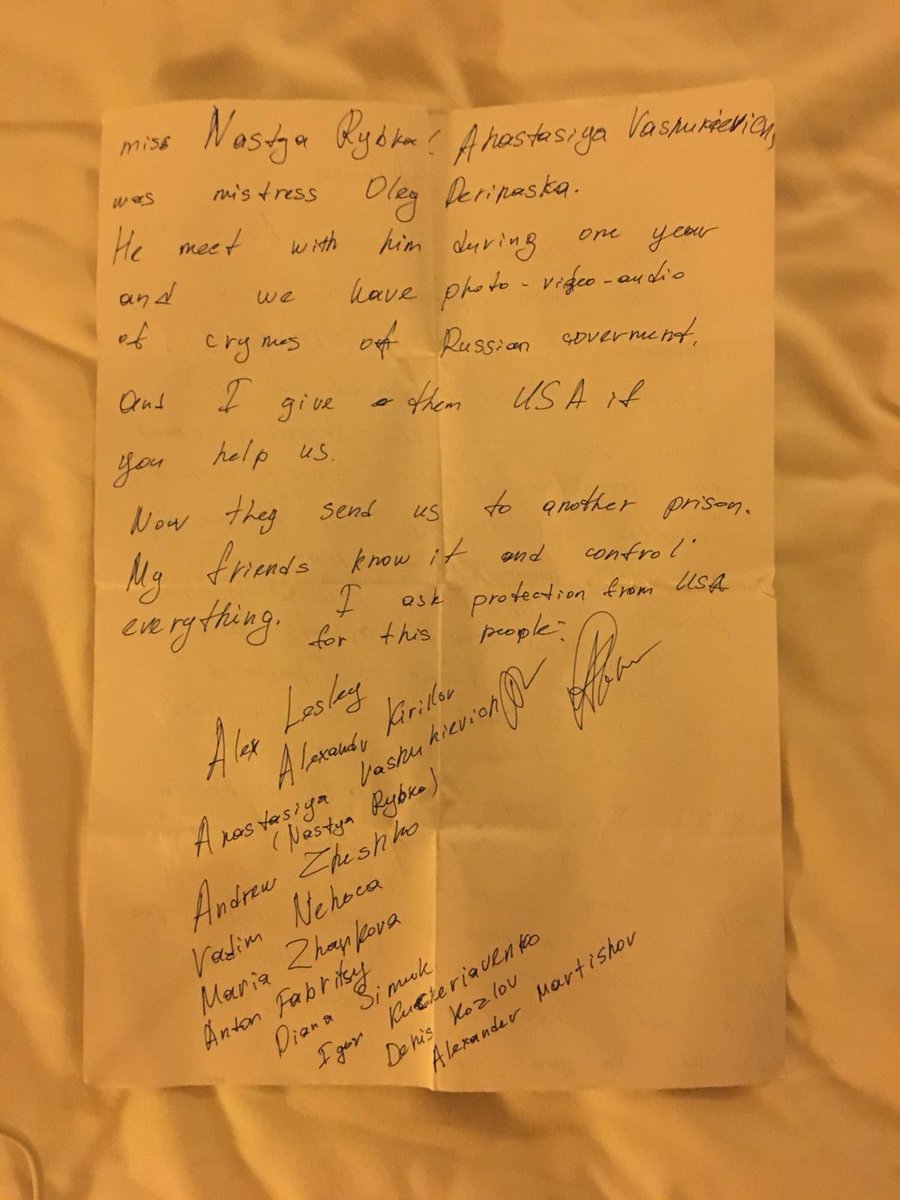 miss Nastya Rybka (Anastasiya Vashukievich,
was mistress Oleg Deripaska.
He meet with him during one year
and we have photo-video-audio
of crymes of Russian goverment.
And I give them USA if
you help us.
Now they send us to another prison.
My friends know it and control
everything. I ask protection from USA
for this people:
Alex Lesley
Alexandr Kirillov
Anastasiya Vashukievich
(Nastya Rybka)
Andrew Zheshko
Vadim Nehoca
Maria Zharkova
Anton Fabritsy
Diana Simuk
Igor Kucheriavenko
Denis Kozlov
Alexander Martishov